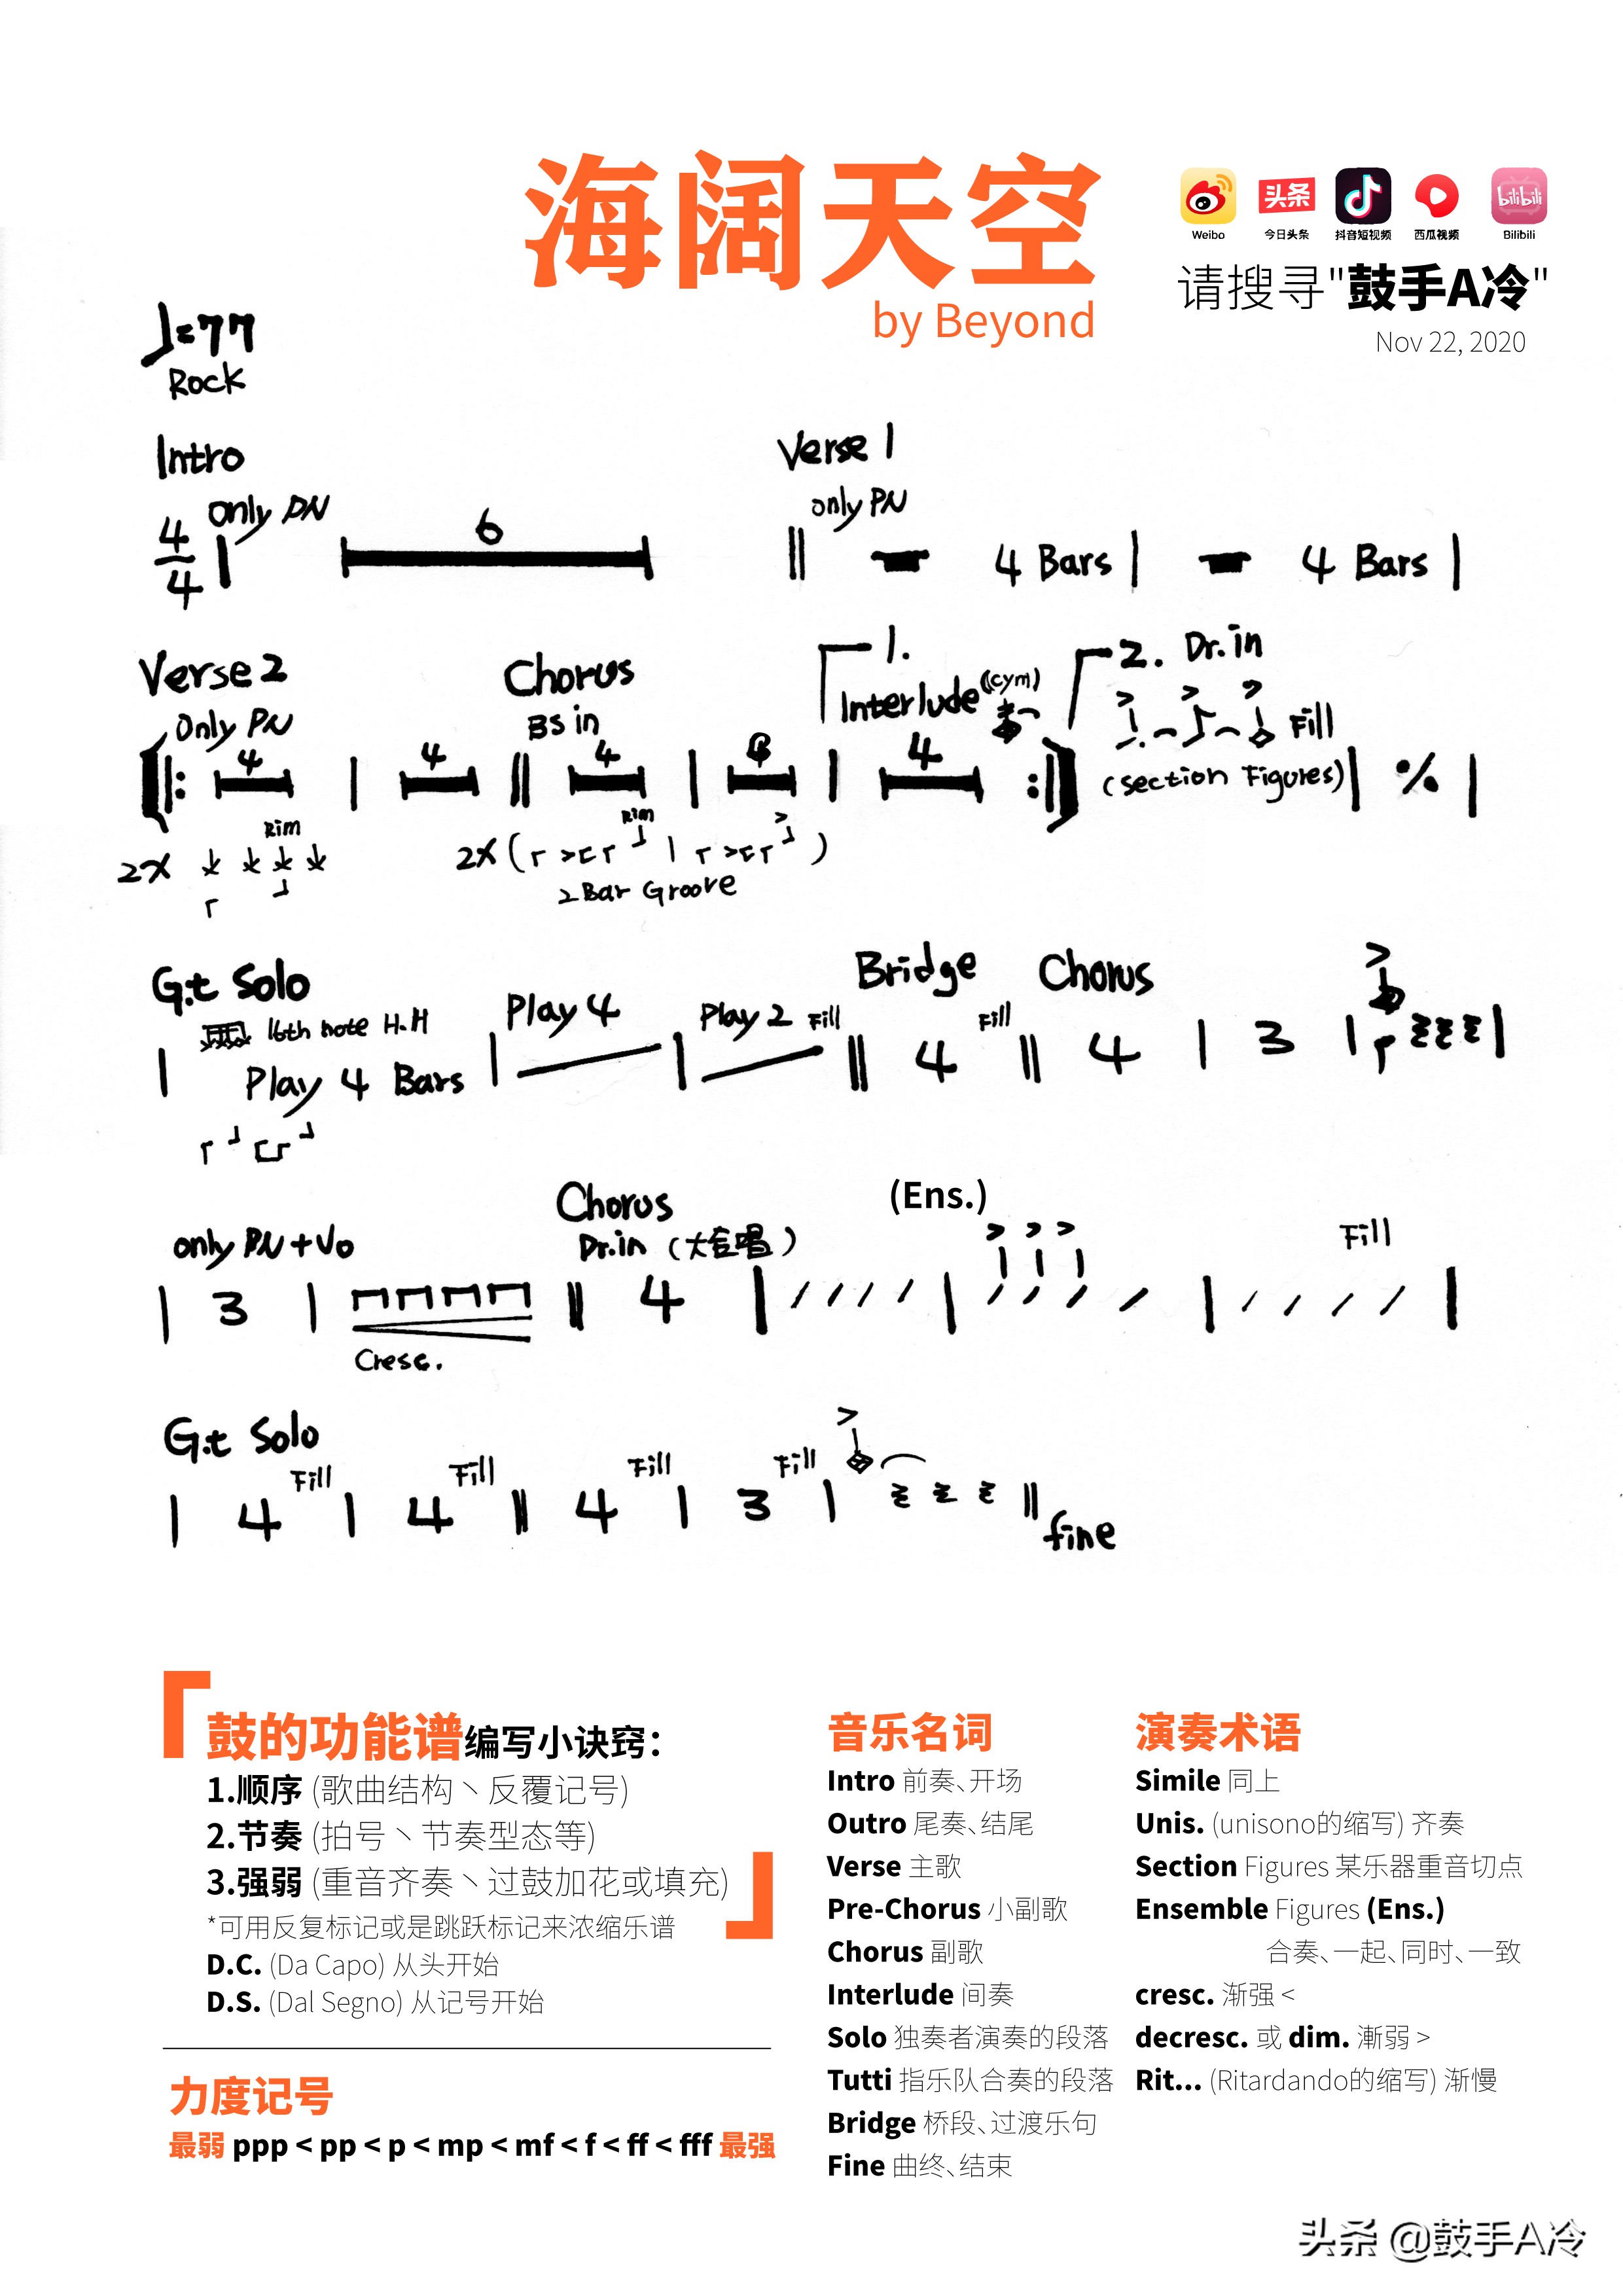 海阔天空
by Beyond
Weibo 今日头条 抖音短视频 西瓜视频 bilibili Bilibili
头条
请搜寻"鼓手A冷"
Nov 22, 2020
♩=77
Rock
Intro
Verse 1
only PN
6
only PN
4/4
4 Bars 4 Bars
Verse 2
Chorus
1.
2. Dr.in
Only PN
BS in
Interlude (cym)
Fill
4 4 4 4
(Section Figures) %
2X Rim
2X ( Rim )
2 Bar Groove
G.t Solo
Bridge Chorus
16th note H.H
Play 4
Play 2 Fill
Fill
Play 4 Bars
4 4 3
Chorus
(Ens.)
only PN + Vo
Dr.in (大合唱)
> > >
Fill
3 4
Cresc.
G.t Solo
Fill Fill Fill Fill
4 4 4 3
fine
「鼓的功能谱编写小诀窍：
1.顺序 (歌曲结构、反覆记号)
2.节奏 (拍号、节奏型态等)
3.强弱 (重音齐奏、过鼓加花或填充)」
*可用反复标记或是跳跃标记来浓缩乐谱
D.C. (Da Capo) 从头开始
D.S. (Dal Segno) 从记号开始
力度记号
最弱 ppp < pp < p < mp < mf < f < ff < fff 最强
音乐名词
Intro 前奏、开场
Outro 尾奏、结尾
Verse 主歌
Pre-Chorus 小副歌
Chorus 副歌
Interlude 间奏
Solo 独奏者演奏的段落
Tutti 指乐队合奏的段落
Bridge 桥段、过渡乐句
Fine 曲终、结束
演奏术语
Simile 同上
Unis. (unisono的缩写) 齐奏
Section Figures 某乐器重音切点
Ensemble Figures (Ens.)
合奏、一起、同时、一致
cresc. 渐强 <
decresc. 或 dim. 漸弱 >
Rit... (Ritardando的缩写) 渐慢
头条 @鼓手A冷